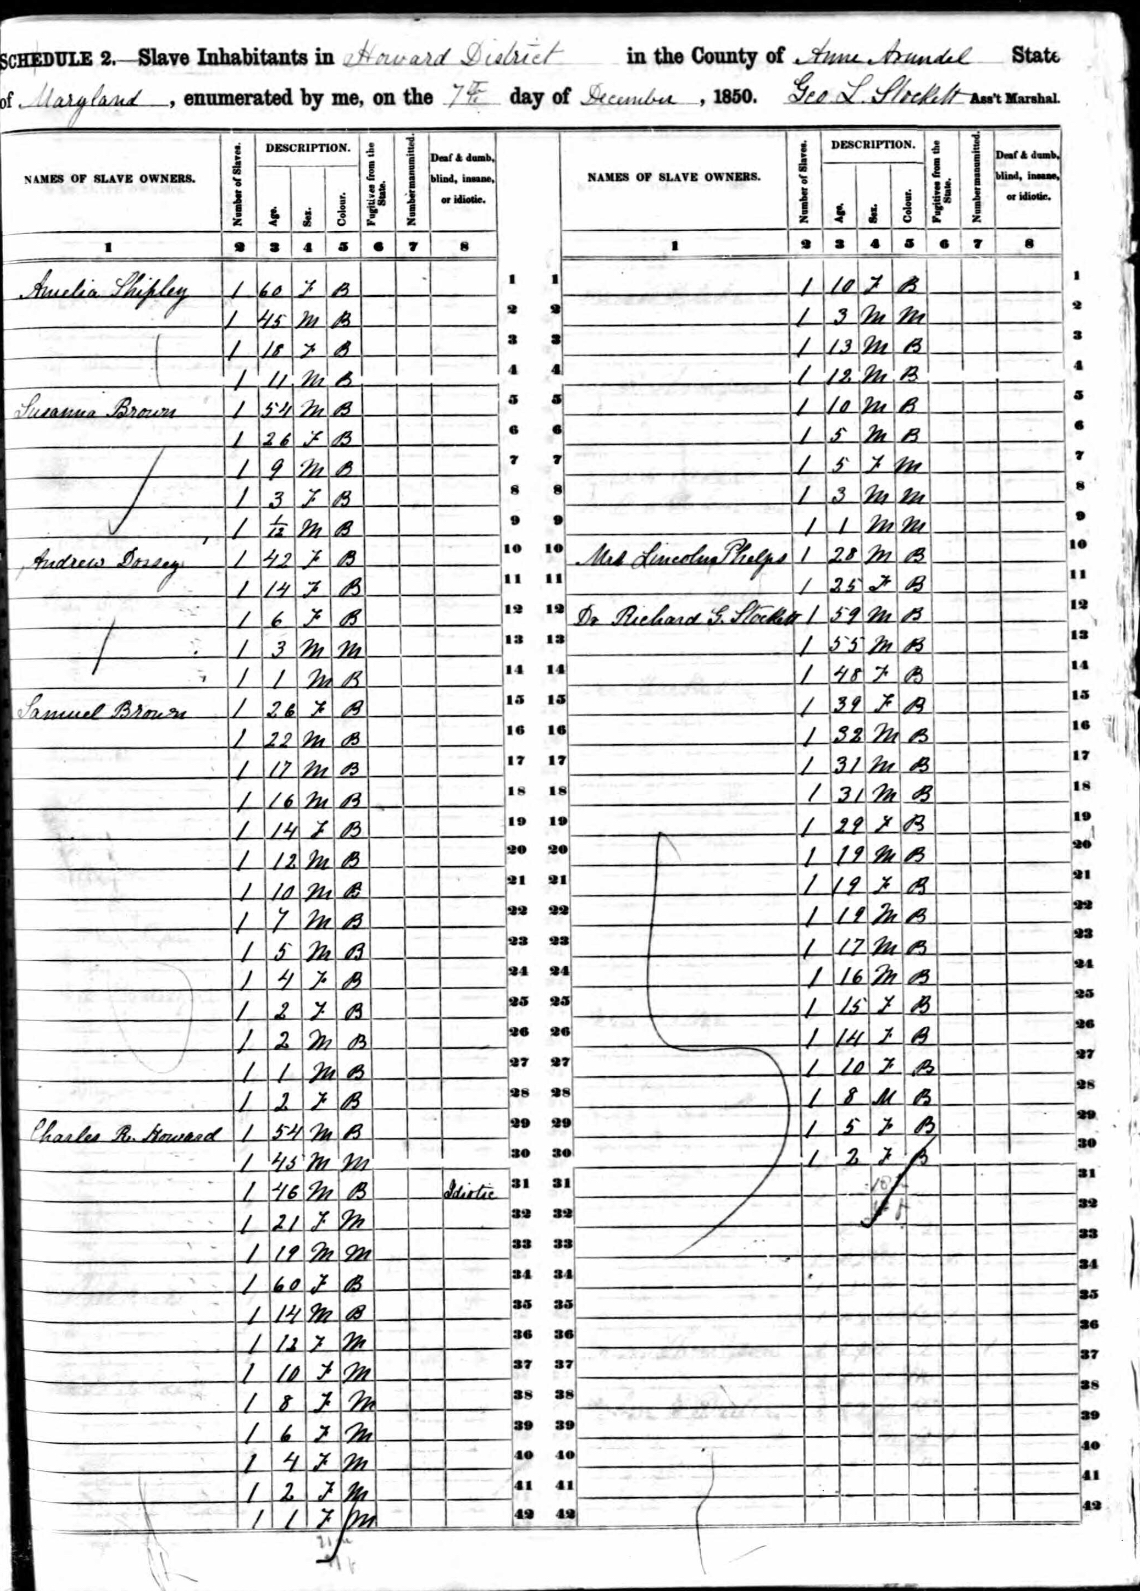 SCHEDULE 2.—Slave Inhabitants in Howard District in the County of Anne Arundel State
of Maryland, enumerated by me, on the 7th day of December, 1850. Geo L. Stockett Ass't Marshal.
NAMES OF SLAVE OWNERS. Number of Slaves. DESCRIPTION. Age. Sex. Colour. Fugitives from the State. Number manumitted. Deaf & dumb, blind, insane, or idiotic.
NAMES OF SLAVE OWNERS. Number of Slaves. DESCRIPTION. Age. Sex. Colour. Fugitives from the State. Number manumitted. Deaf & dumb, blind, insane, or idiotic.
1 2 3 4 5 6 7 8 1 2 3 4 5 6 7 8
Amelia Shipley 1 60 F B 1 1 1 10 F B 1
1 45 M B 2 2 1 3 M M 2
1 18 F B 3 3 1 13 M B 3
1 11 M B 4 4 1 12 M B 4
Susanna Brown 1 54 M B 5 5 1 10 M B 5
1 26 F B 6 6 1 5 M B 6
1 9 M B 7 7 1 5 F M 7
1 3 F B 8 8 1 3 M M 8
1 1/12 M B 9 9 1 1 M M 9
Andrew Dossey 1 42 F B 10 10 Mrs Lincoln Phelps 1 28 M B 10
1 14 F B 11 11 1 25 F B 11
1 6 F B 12 12 Dr Richard G. Stockett 1 59 M B 12
1 3 M M 13 13 1 55 M B 13
1 1 M B 14 14 1 48 F B 14
Samuel Brown 1 26 F B 15 15 1 39 F B 15
1 22 M B 16 16 1 32 M B 16
1 17 M B 17 17 1 31 M B 17
1 16 M B 18 18 1 31 M B 18
1 14 F B 19 19 1 29 F B 19
1 12 M B 20 20 1 19 M B 20
1 10 M B 21 21 1 19 F B 21
1 7 M B 22 22 1 19 M B 22
1 5 M B 23 23 1 17 M B 23
1 4 F B 24 24 1 16 M B 24
1 2 F B 25 25 1 15 F B 25
1 2 M B 26 26 1 14 F B 26
1 1 M B 27 27 1 10 F B 27
1 2 F B 28 28 1 8 M B 28
Charles R. Howard 1 54 M B 29 29 1 5 F B 29
1 45 M M 30 30 1 2 F B 30
1 46 M B Idiotic 31 31 31
1 21 F M 32 32 32
1 19 M M 33 33 33
1 60 F B 34 34 34
1 14 M B 35 35 35
1 12 F M 36 36 36
1 10 F M 37 37 37
1 8 F M 38 38 38
1 6 F M 39 39 39
1 4 F M 40 40 40
1 2 F M 41 41 41
1 1 F M 42 42 42